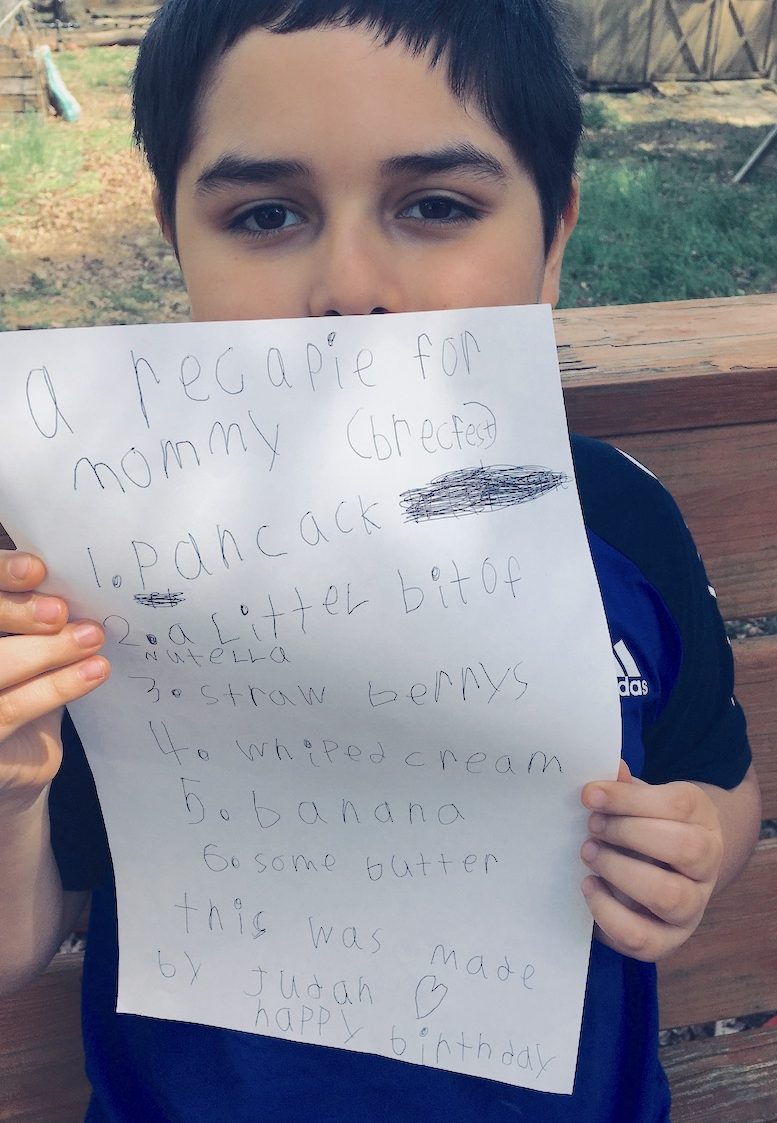 a recapie for
mommy (brecfest)
1. pancack
2. a Litter bit of
NutELLA
3. straw berrys
4. whiped cream
5. banana
6. some butter
this was made
by Judah
happy birthday
das